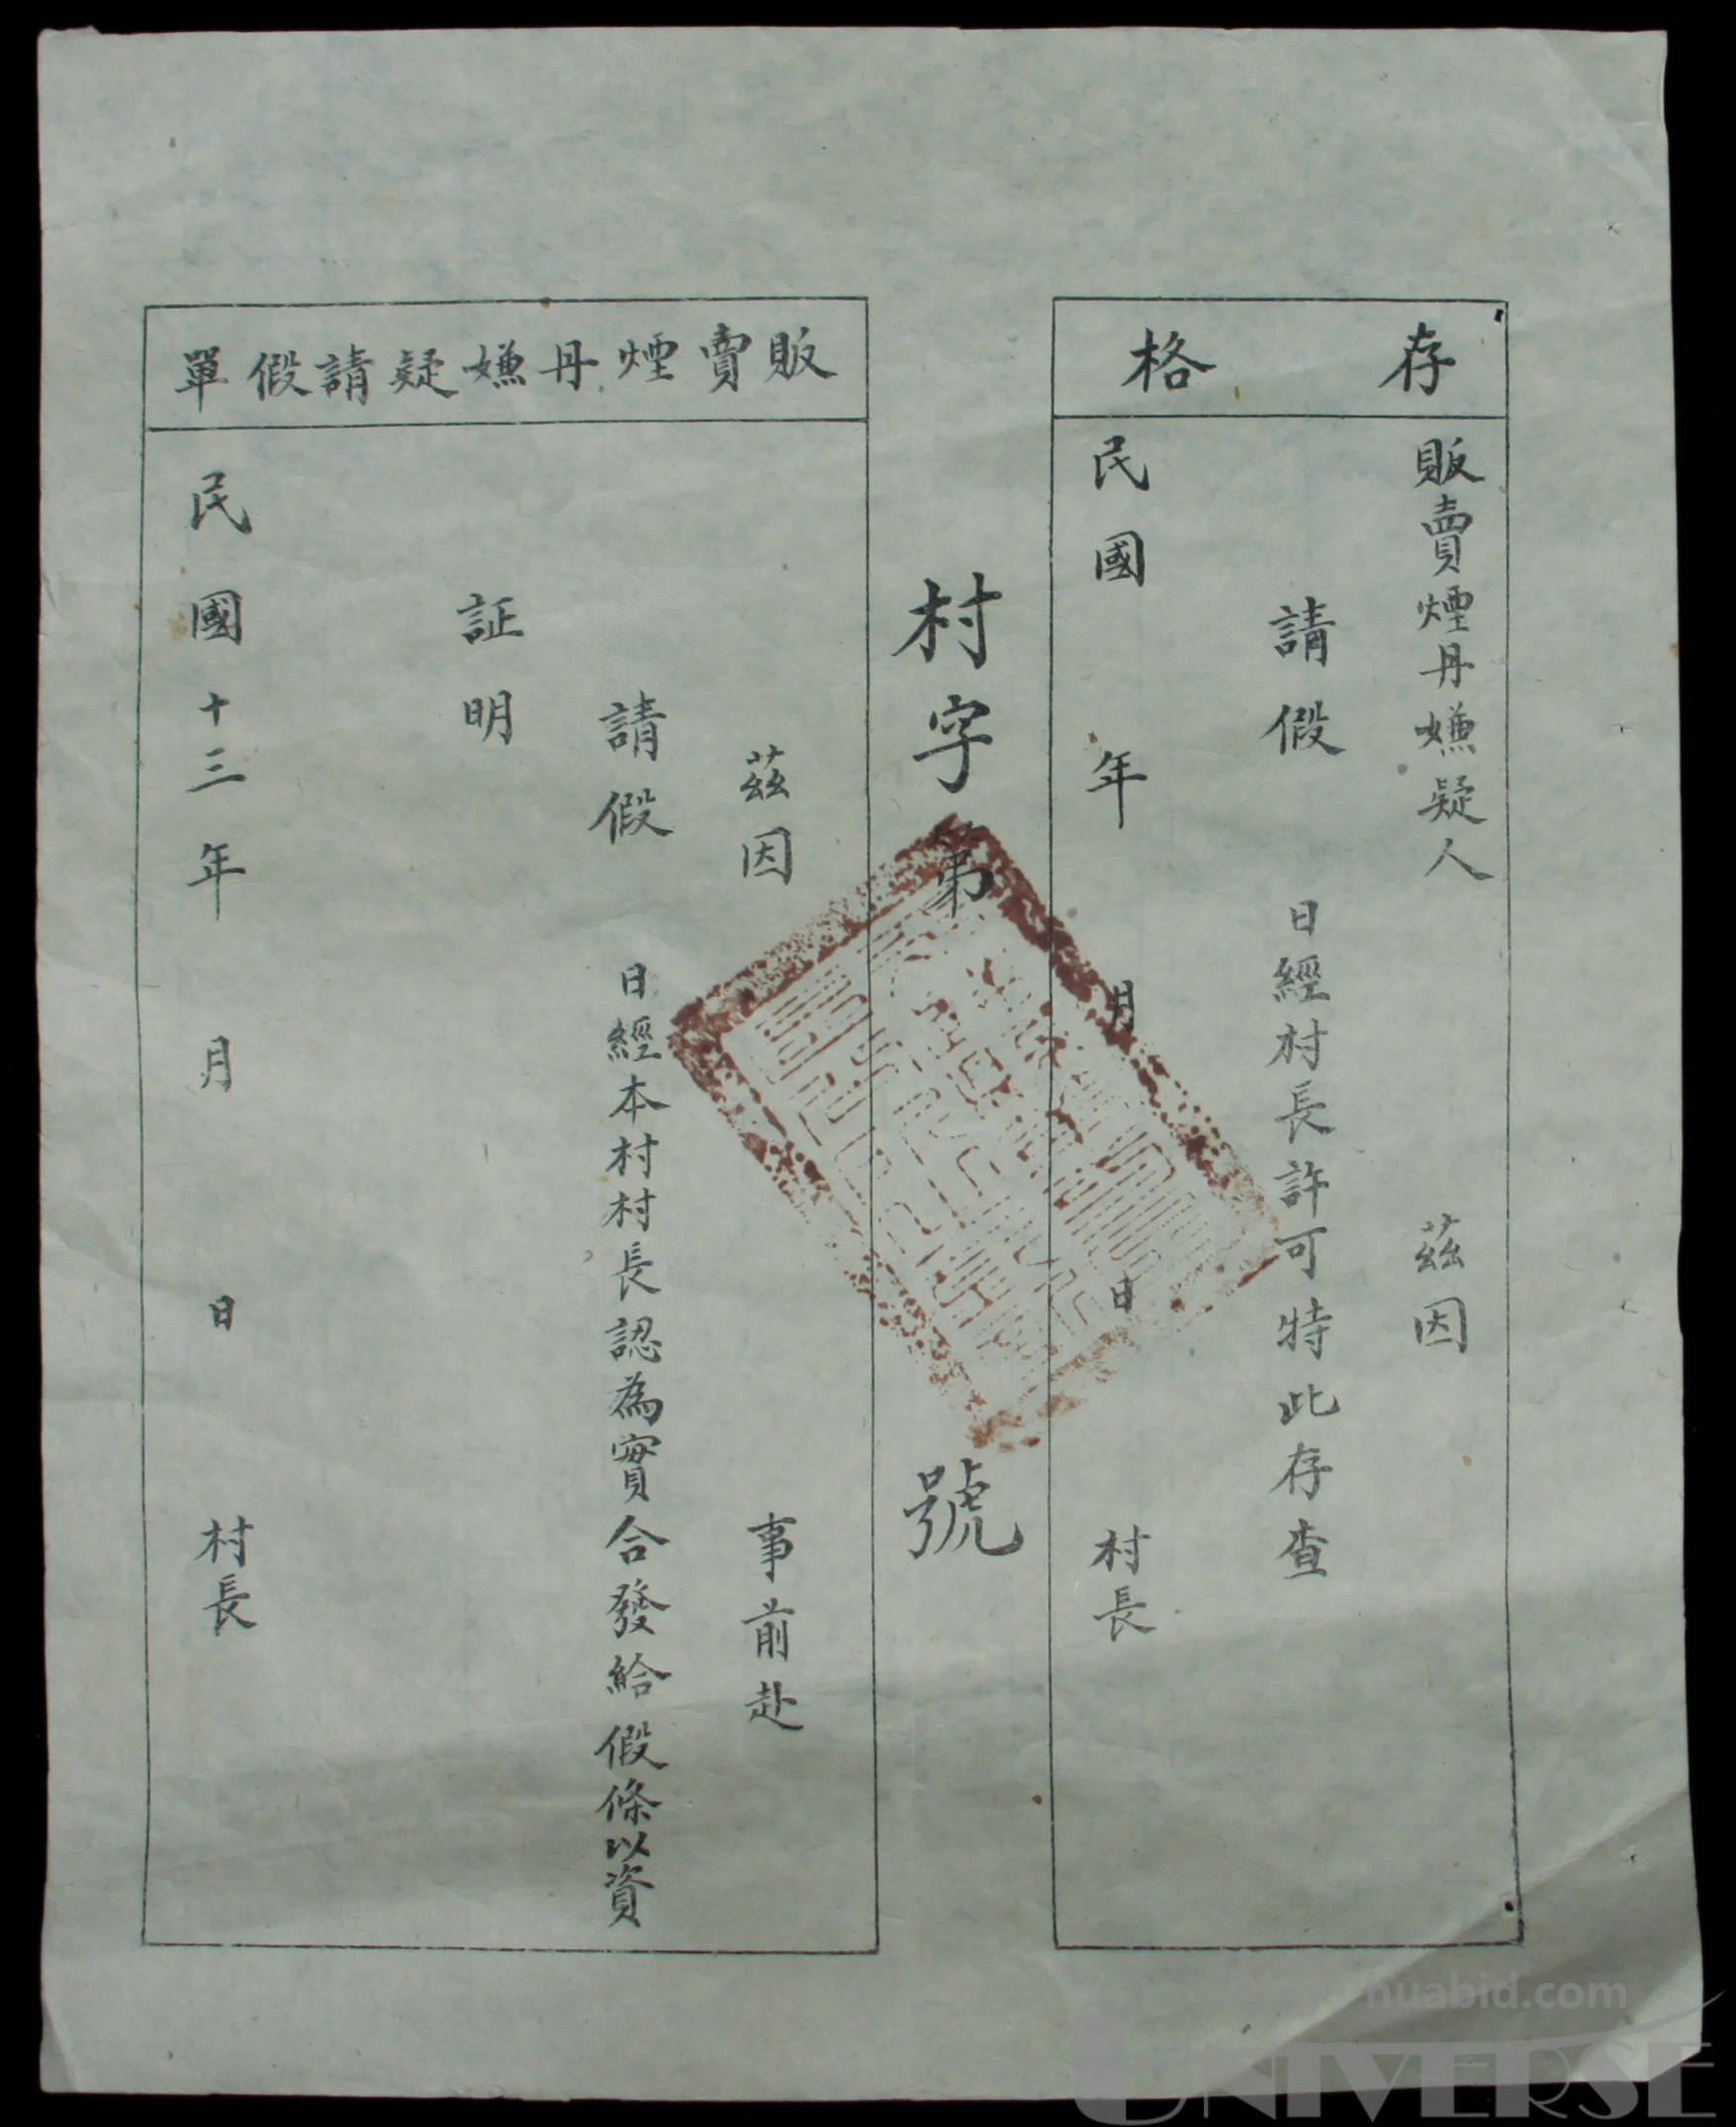 存格
販賣煙丹嫌疑人 茲因
請假 日經村長許可特此存查
民國 年 月 日 村長
村字第 號
販賣煙丹嫌疑請假單
茲因 事前赴
請假 日經本村村長認為實合發給假條以資
証明
民國十三年 月 日 村長
huabid.com
UNIVERSE